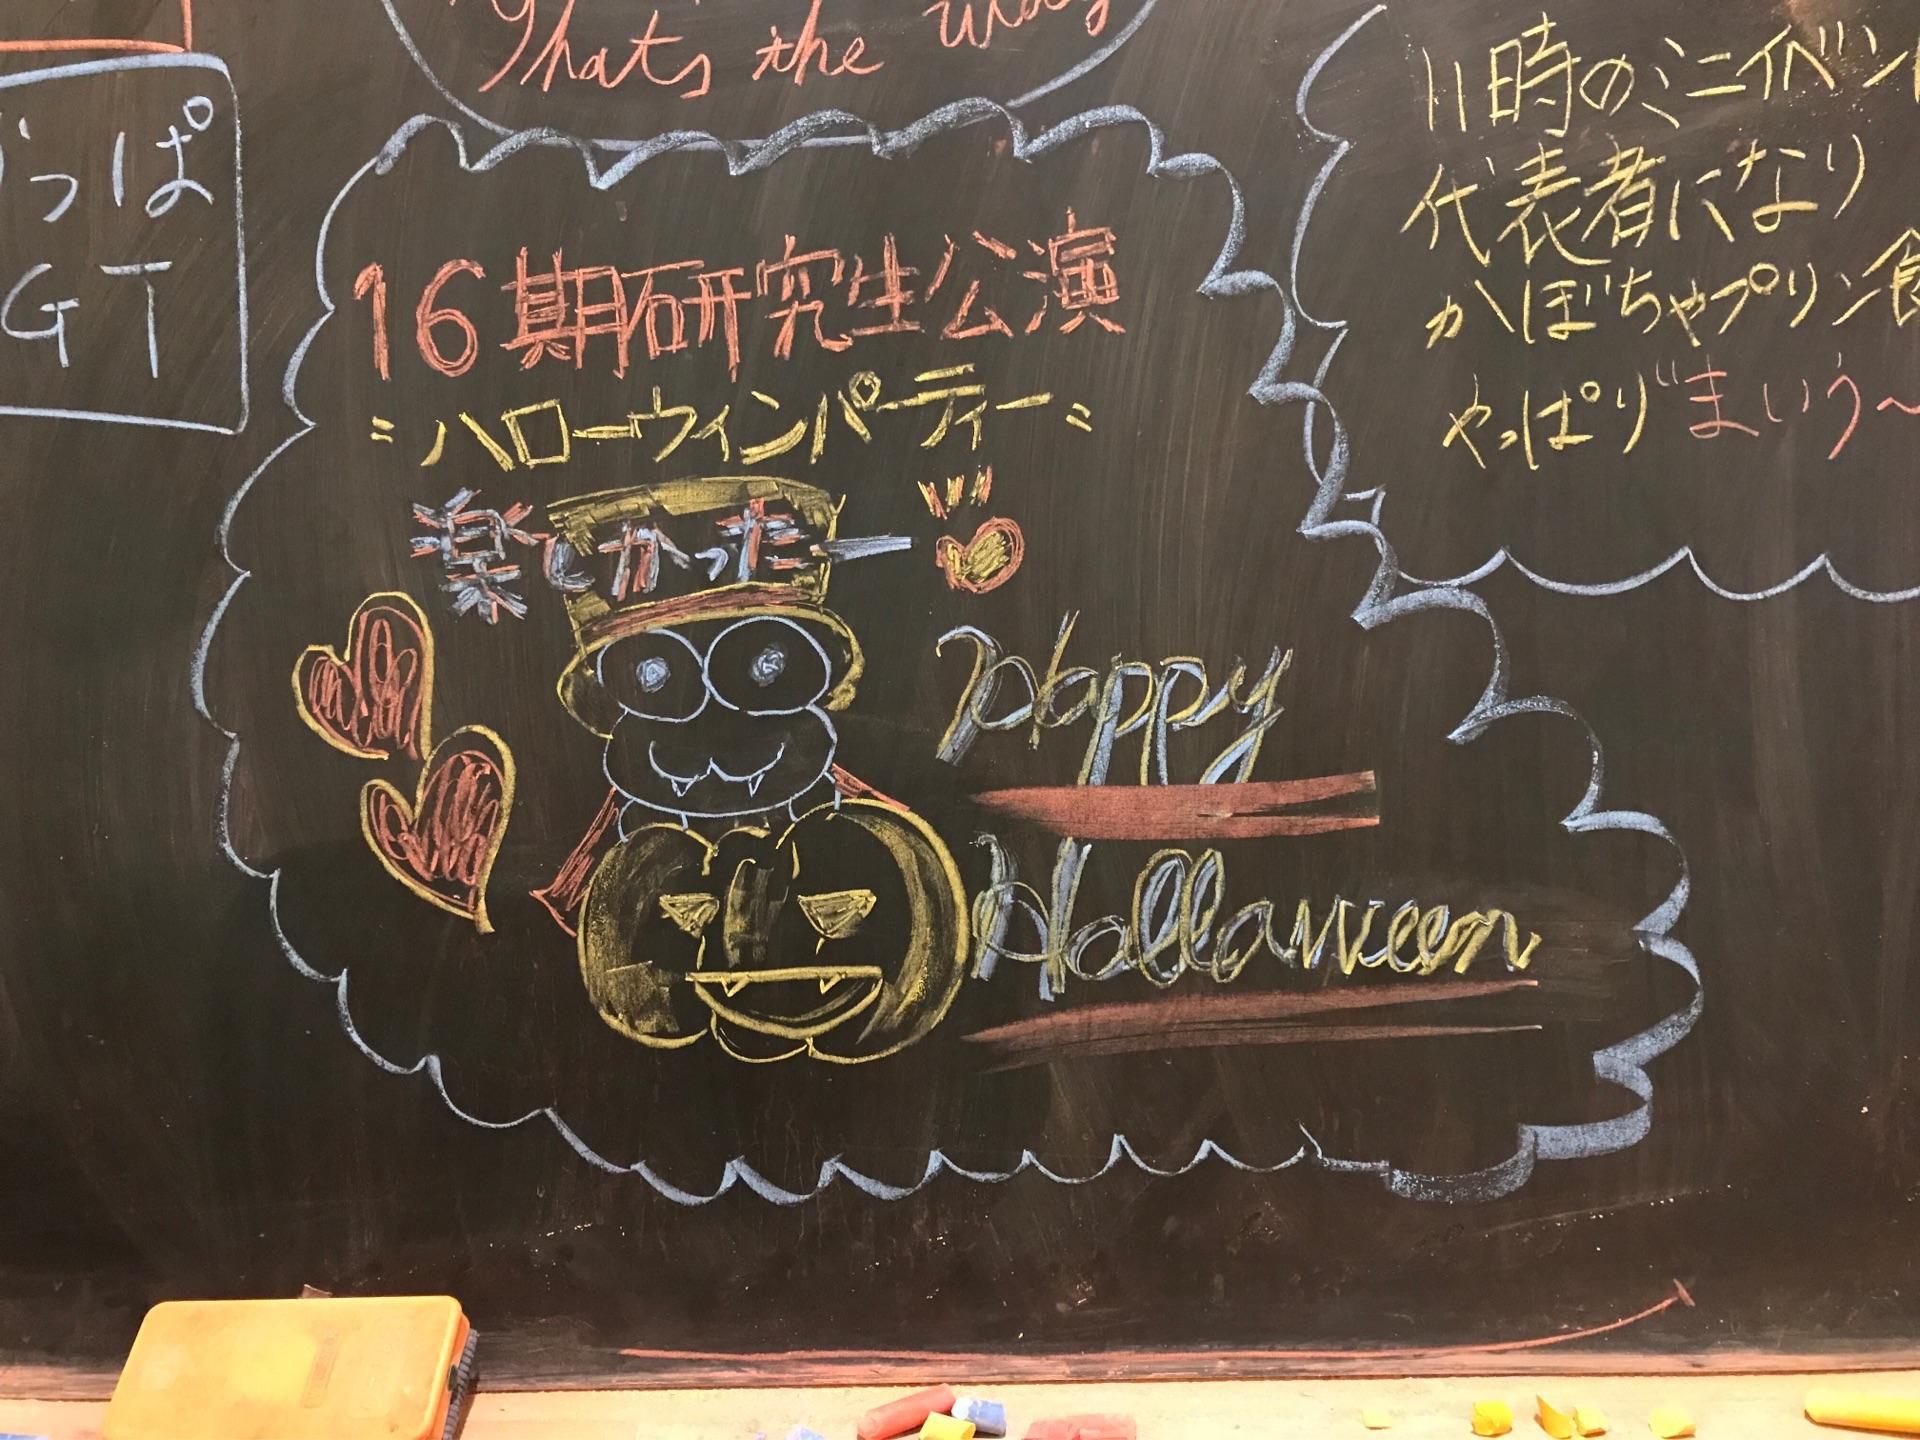 Thats the way
っぱ
GT
16期研究生公演
=ハローウィンパーティー=
楽しかったー
Happy
Halloween
11時のミニイベント
代表者になり
かぼちゃプリン食
やっぱり"まいう〜